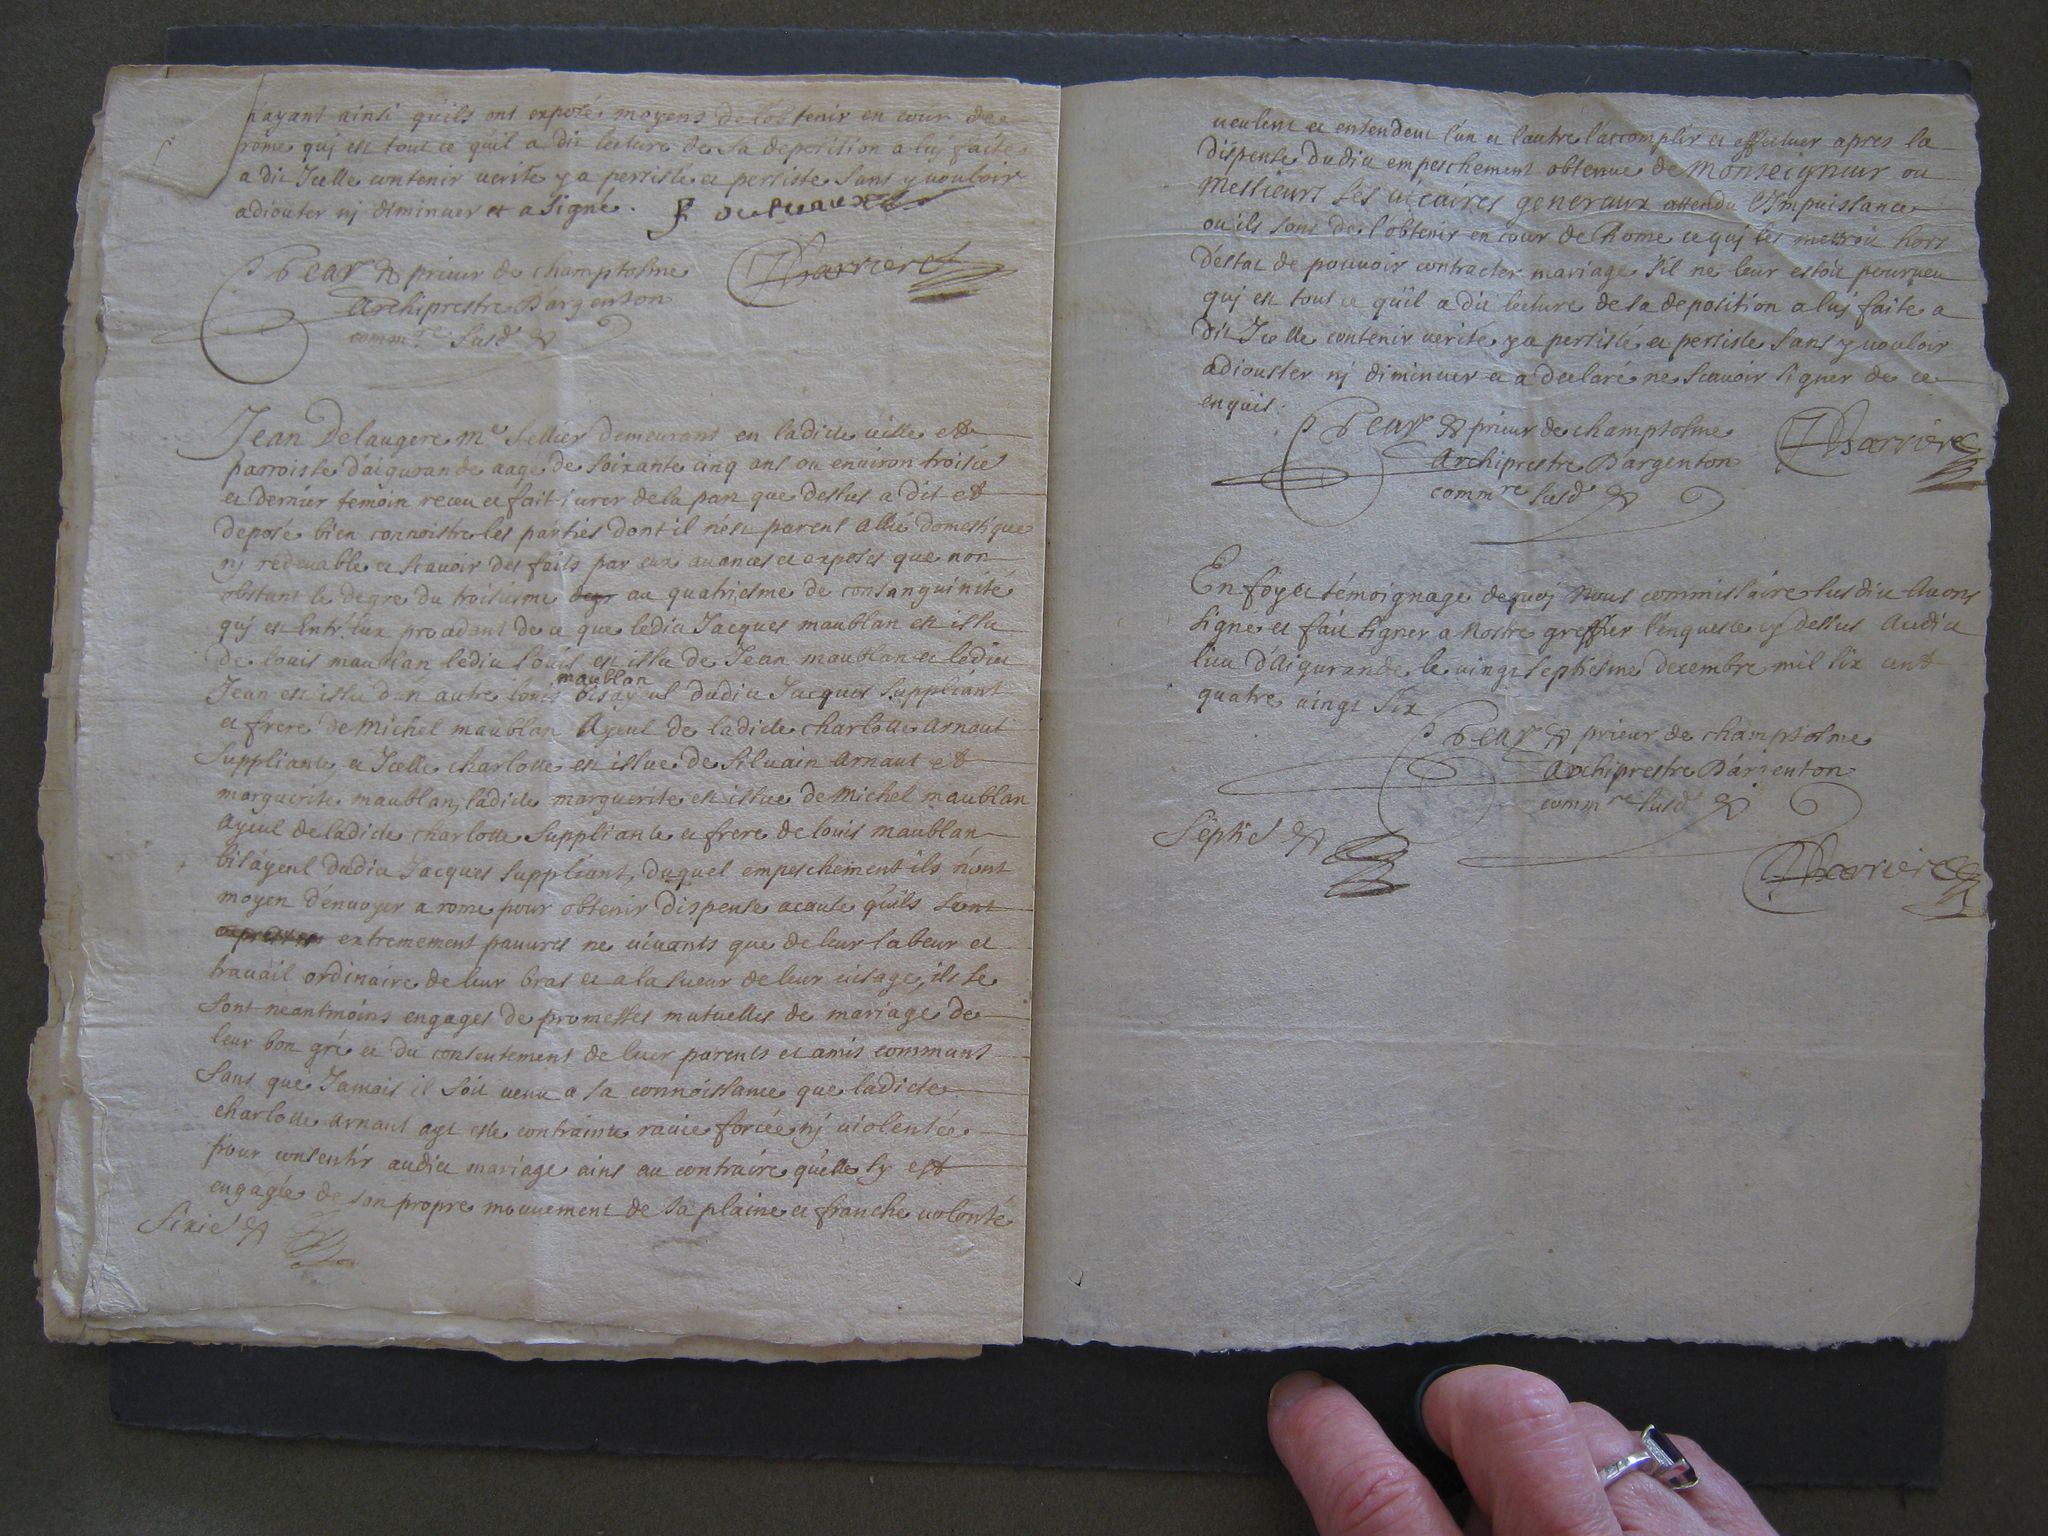 nayant ainsi quils ont exposé moyens de lobtenir en cour de
rome quj est tout ce quil a dit lecture de sa deposition a luj faite
a dit Icelle contenir verite y a persisté et persiste sans y vouloir
adiouter nj diminuer et a signé.
prieur de champtosme Charriere
Archiprestre D'argenton
comm.re susd.
Jean Delaugere me sellier demeurant en ladicte ville et
parroisse d'aigurande aagé de soixante cinq ans ou environ troisie
et dernier temoin receu et fait jurer de la part que dessus a dit et
deposé bien connoistre les parties dont il n'est parent allié domestique
nj redevable et scavoir des faits par eux avances et exposes que non
obstant le degre du troisiesme degr au quatriesme de consanguinité
quj est Entr'eux procedant de ce que ledit Jacques maublan est issu
de louis maublan ledit louis est issu de Jean maublan et ledit
Jean est issu d'un autre louis maublan bisayeul dudit Jacques suppliant
et frere de Michel maublan Ayeul de ladicte charlotte Arnaut
suppliante, et Icelle charlotte est issue de silvain Arnaut et
marguerite maublan, ladicte marguerite est issue de Michel maublan
Ayeul de ladicte charlotte suppliante et frere de louis maublan
bisayeul dudit Jacques suppliant, duquel empeschement ils n'ont
moyen d'envoyer a rome pour obtenir dispense acause quils sont
extremement pauvres ne vivants que de leur labeur et
travail ordinaire de leur bras et a la sueur de leur visage, ils se
sont neantmoins engages de promesses mutuelles de mariage de
leur bon gré et du consentement de leur parents et amis communs
sans que Jamais il soit venu a sa connoissance que ladicte
charlotte Arnaut ayt esté contrainte ravie forcée nj violentée
pour consentir audit mariage ains au contraire qu'elle sy est
engagée de son propre mouvement de sa plaine et franche volonté
Sixie
veulent et entendent l'un et lautre l'accomplir et effectuer apres la
dispense dudit empeschement obtenue de Monseigneur ou
Messieurs ses viccaires generaux attendu l'Impuissance
ou ils sont de l'obtenir en cour de Rome ce quj les mettroit hors
d'estat de pouvoir contracter mariage s'il ne leur estoit pourveu
quj est tout ce quil a dit lecture de sa deposition a luj faite a
dit Icelle contenir verité y a persisté et persiste sans y vouloir
adiouster nj diminuer et a declaré ne scavoir signer de ce
enquis.
prieur de champtosme Charriere
Archiprestre D'argenton
comm.re susd.
En foy et témoignage dequoj Nous commissaire susdit Avons
signe et fait signer a Nostre greffier l'enqueste cy dessus Audit
lieu d'Aigurande le vingt septiesme decembre mil six cent
quatre vingt six
prieur de champtosme
Archiprestre D'argenton
comm.re susd.
Septie
Charriere